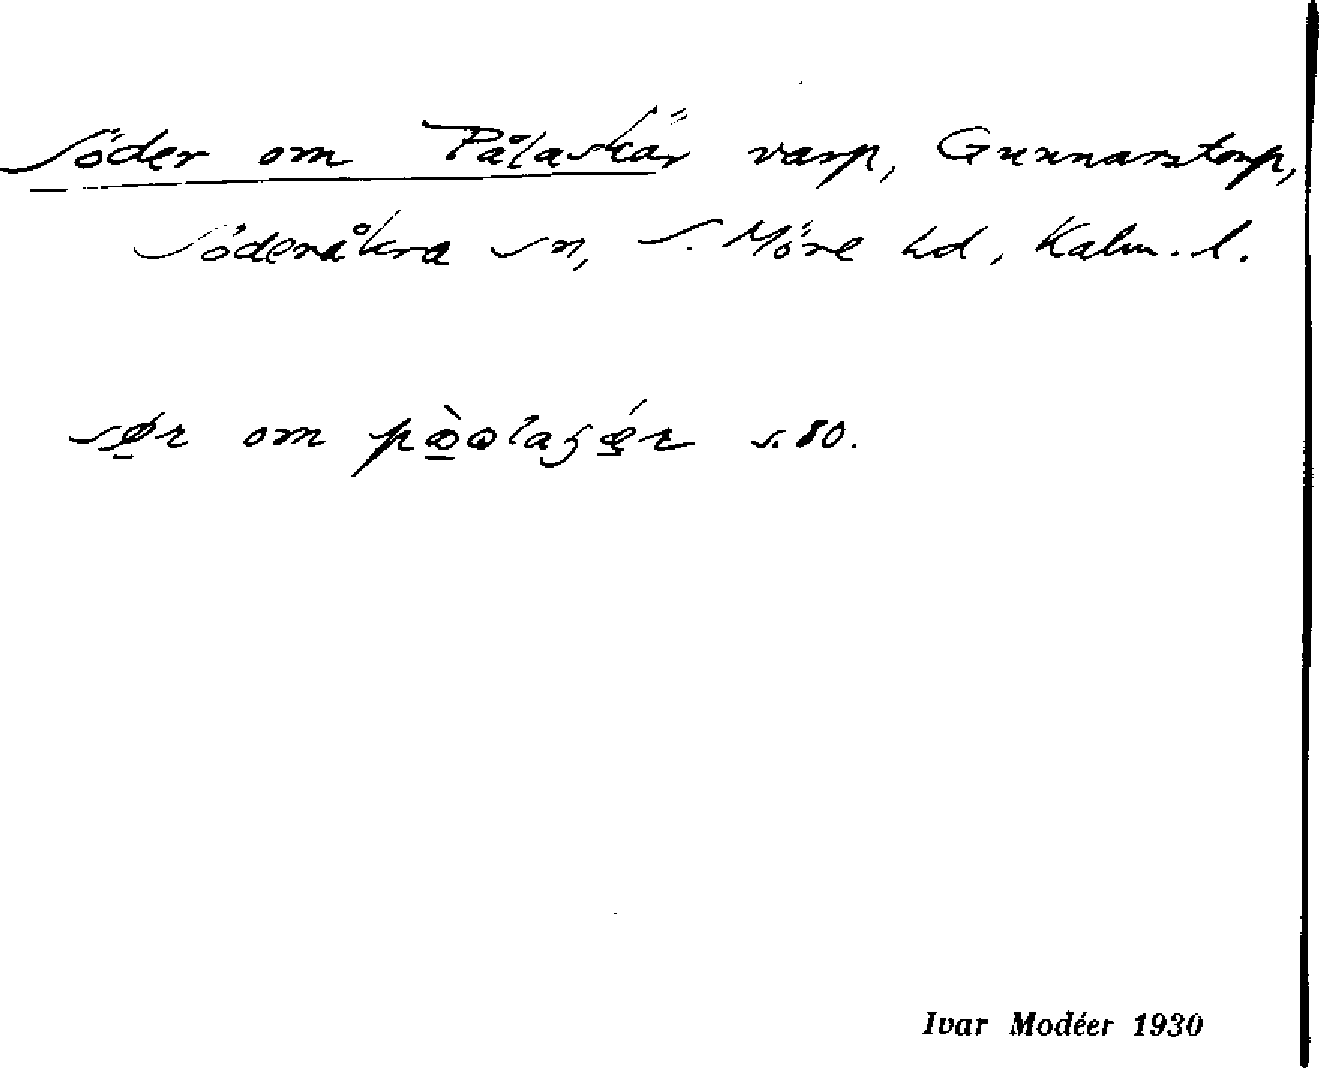 Söder om Pålaskär varp, Gunnarstorp,
Söderåkra sn, S. Möre hd, Kalm. l.
sør om s. 80.
Ivar Modéer 1930